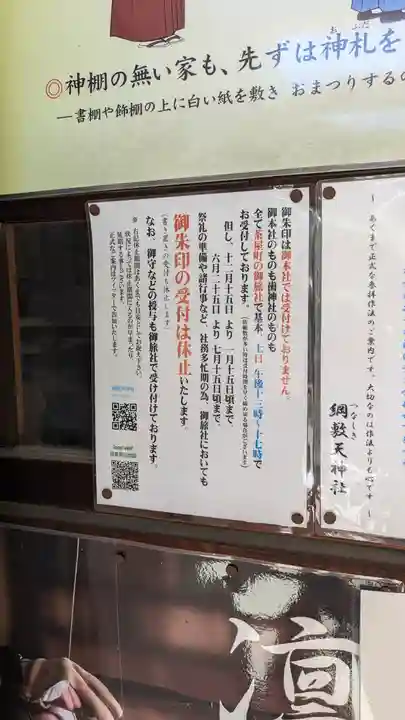 ◎神棚の無い家も、先ずは神札を
おふだ
―書棚や飾棚の上に白い紙を敷き おまつりするの
御朱印は御本社では受付けておりません。
御本社のものも歯神社のものも
全て茶屋町の御旅社で基本、土日 午後十三時〜十七時で
お受付しております。
但し、十二月十五日 より 一月十五日頃まで
六月二十五日 より 七月十五日頃まで、
祭礼の準備や諸行事など、社務多忙期の為、御旅社においても
御朱印の受付は休止いたします。
(書き置きの受付も休止します)
なお、御守などの授与も御旅社で受け付けております。
〜 あくまで正式な参拝作法のご案内です。大切なのは作法よりも心です 〜
つなしき
綱敷天神社
凛